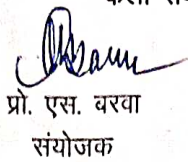 प्रो. एस. वरवा
संयोजक